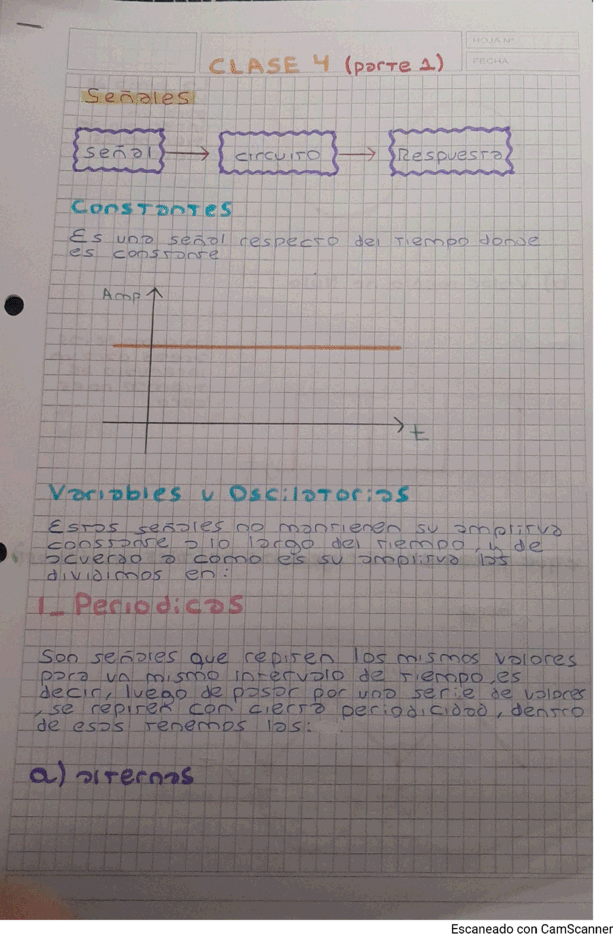 HOJA Nº
FECHA
CLASE 4 (parte 1)
Señales
señal
circuito
Respuesta
Constantes
Es una señal respecto del tiempo donde
es constante
Amp
t
Variables u Oscilatorias
Estas señales no mantienen su amplitud
constante a lo largo del tiempo, y de
acuerdo a como es su amplitud las
dividimos en:
1_ Periodicas
Son señales que repiten los mismos valores
para un mismo intervalo de tiempo, es
decir, luego de pasar por una serie de valores
, se repiten con cierta periodicidad, dentro
de esas tenemos las:
a) alternas
Escaneado con CamScanner